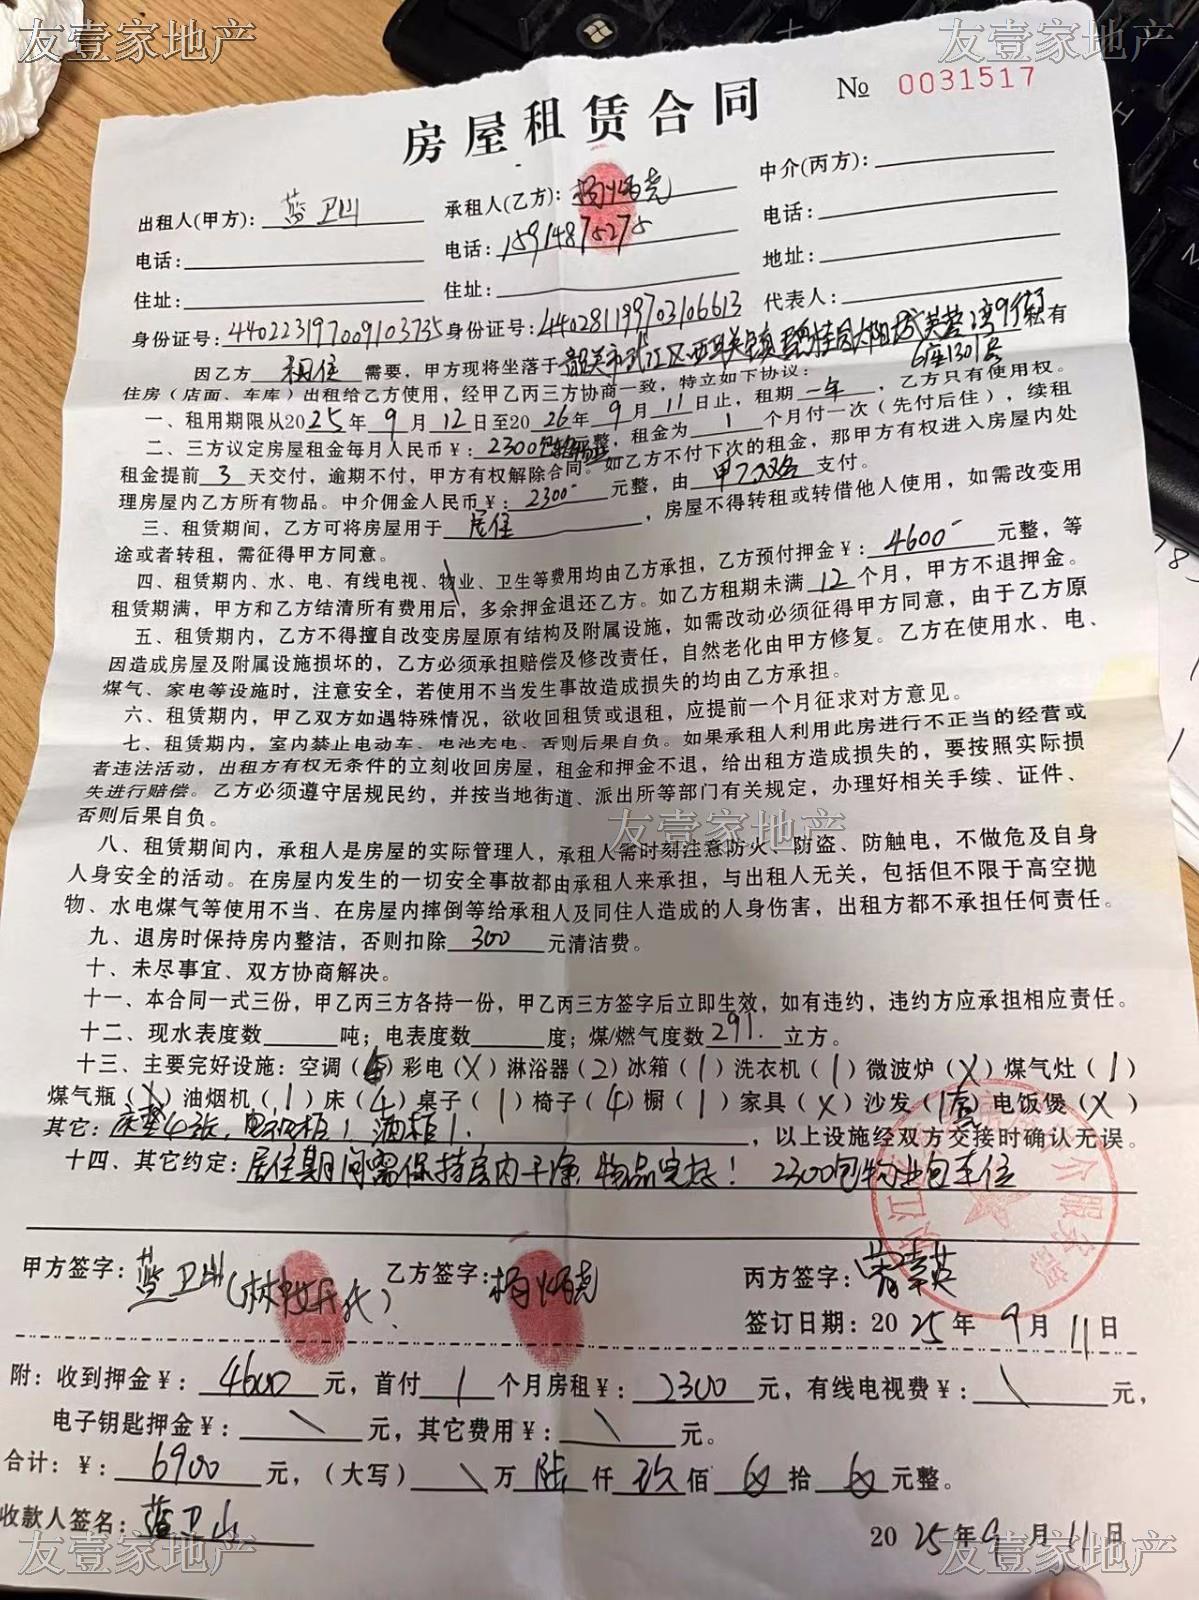 友壹家地产
友壹家地产
房屋租赁合同 № 0031517
出租人(甲方): 蓝卫山 承租人(乙方): 杨炳尧 中介(丙方):
电话: 电话: 15914875275 电话:
住址: 住址: 地址:
身份证号: 440223197009103735 身份证号: 440281199703106613 代表人:
因乙方 租住 需要,甲方现将坐落于 韶关市武江区西联镇碧桂园太阳城芙蓉湾9街 私有
6座1301房
住房(店面、车库)出租给乙方使用,经甲乙丙三方协商一致,特立如下协议:
一、租用期限从2025年9月12日至2026年9月11日止,租期一年,乙方只有使用权。
二、三方议定房屋租金每月人民币¥: 2300 元整,租金为 1 个月付一次(先付后住),续租
租金提前 3 天交付,逾期不付,甲方有权解除合同。如乙方不付下次的租金,那甲方有权进入房屋内处
理房屋内乙方所有物品。中介佣金人民币¥: 2300- 元整,由 甲乙双方 支付。
三、租赁期间,乙方可将房屋用于 居住 ,房屋不得转租或转借他人使用,如需改变用
途或者转租,需征得甲方同意。
四、租赁期内、水、电、有线电视、物业、卫生等费用均由乙方承担,乙方预付押金¥: 4600- 元整,等
租赁期满,甲方和乙方结清所有费用后,多余押金退还乙方。如乙方租期未满 12 个月,甲方不退押金。
五、租赁期内,乙方不得擅自改变房屋原有结构及附属设施,如需改动必须征得甲方同意,由于乙方原
因造成房屋及附属设施损坏的,乙方必须承担赔偿及修改责任,自然老化由甲方修复。乙方在使用水、电、
煤气、家电等设施时,注意安全,若使用不当发生事故造成损失的均由乙方承担。
六、租赁期内,甲乙双方如遇特殊情况,欲收回租赁或退租,应提前一个月征求对方意见。
七、租赁期内,室内禁止电动车、电池充电、否则后果自负。如果承租人利用此房进行不正当的经营或
者违法活动,出租方有权无条件的立刻收回房屋,租金和押金不退,给出租方造成损失的,要按照实际损
失进行赔偿。乙方必须遵守居规民约,并按当地街道、派出所等部门有关规定,办理好相关手续、证件、
否则后果自负。
友壹家地产
八、租赁期间内,承租人是房屋的实际管理人,承租人需时刻注意防火、防盗、防触电,不做危及自身
人身安全的活动。在房屋内发生的一切安全事故都由承租人来承担,与出租人无关,包括但不限于高空抛
物、水电煤气等使用不当、在房屋内摔倒等给承租人及同住人造成的人身伤害,出租方都不承担任何责任。
九、退房时保持房内整洁,否则扣除 300 元清洁费。
十、未尽事宜、双方协商解决。
十一、本合同一式三份,甲乙丙三方各持一份,甲乙丙三方签字后立即生效,如有违约,违约方应承担相应责任。
十二、现水表度数 吨;电表度数 度;煤/燃气度数 291. 立方。
十三、主要完好设施:空调(5)彩电(X)淋浴器(2)冰箱(1)洗衣机(1)微波炉(X)煤气灶(1)
煤气瓶(X)油烟机(1)床(4)桌子(1)椅子(4)橱(1)家具(X)沙发(1套)电饭煲(X)
其它: 床垫4张,电视柜1,酒柜1. ,以上设施经双方交接时确认无误。
十四、其它约定: 居住期间需保持房内干净,物品完好! 2300包物业包车位
甲方签字: 蓝卫山 乙方签字: 杨炳尧 丙方签字:
签订日期: 2025年9月11日
附: 收到押金¥: 4600 元,首付 1 个月房租¥: 2300 元,有线电视费¥: \ 元,
电子钥匙押金¥: \ 元,其它费用¥: \ 元。
合计: ¥: 6900 元,(大写) \ 万 陆 仟 玖 佰 拾 元整。
收款人签名: 蓝卫山 2025年9月11日
友壹家地产
友壹家地产